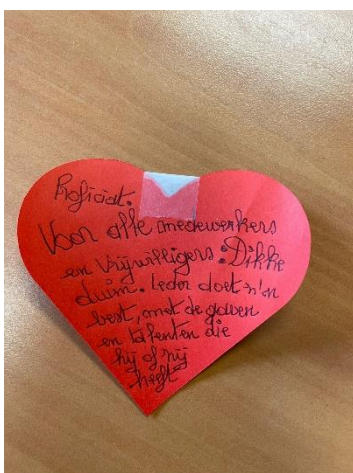 Proficiat.
Voor alle medewerkers
en Vrijwilligers: Dikke
duim. Ieder doet z'n
best, met de gaven
en talenten die
hij of zij
heeft